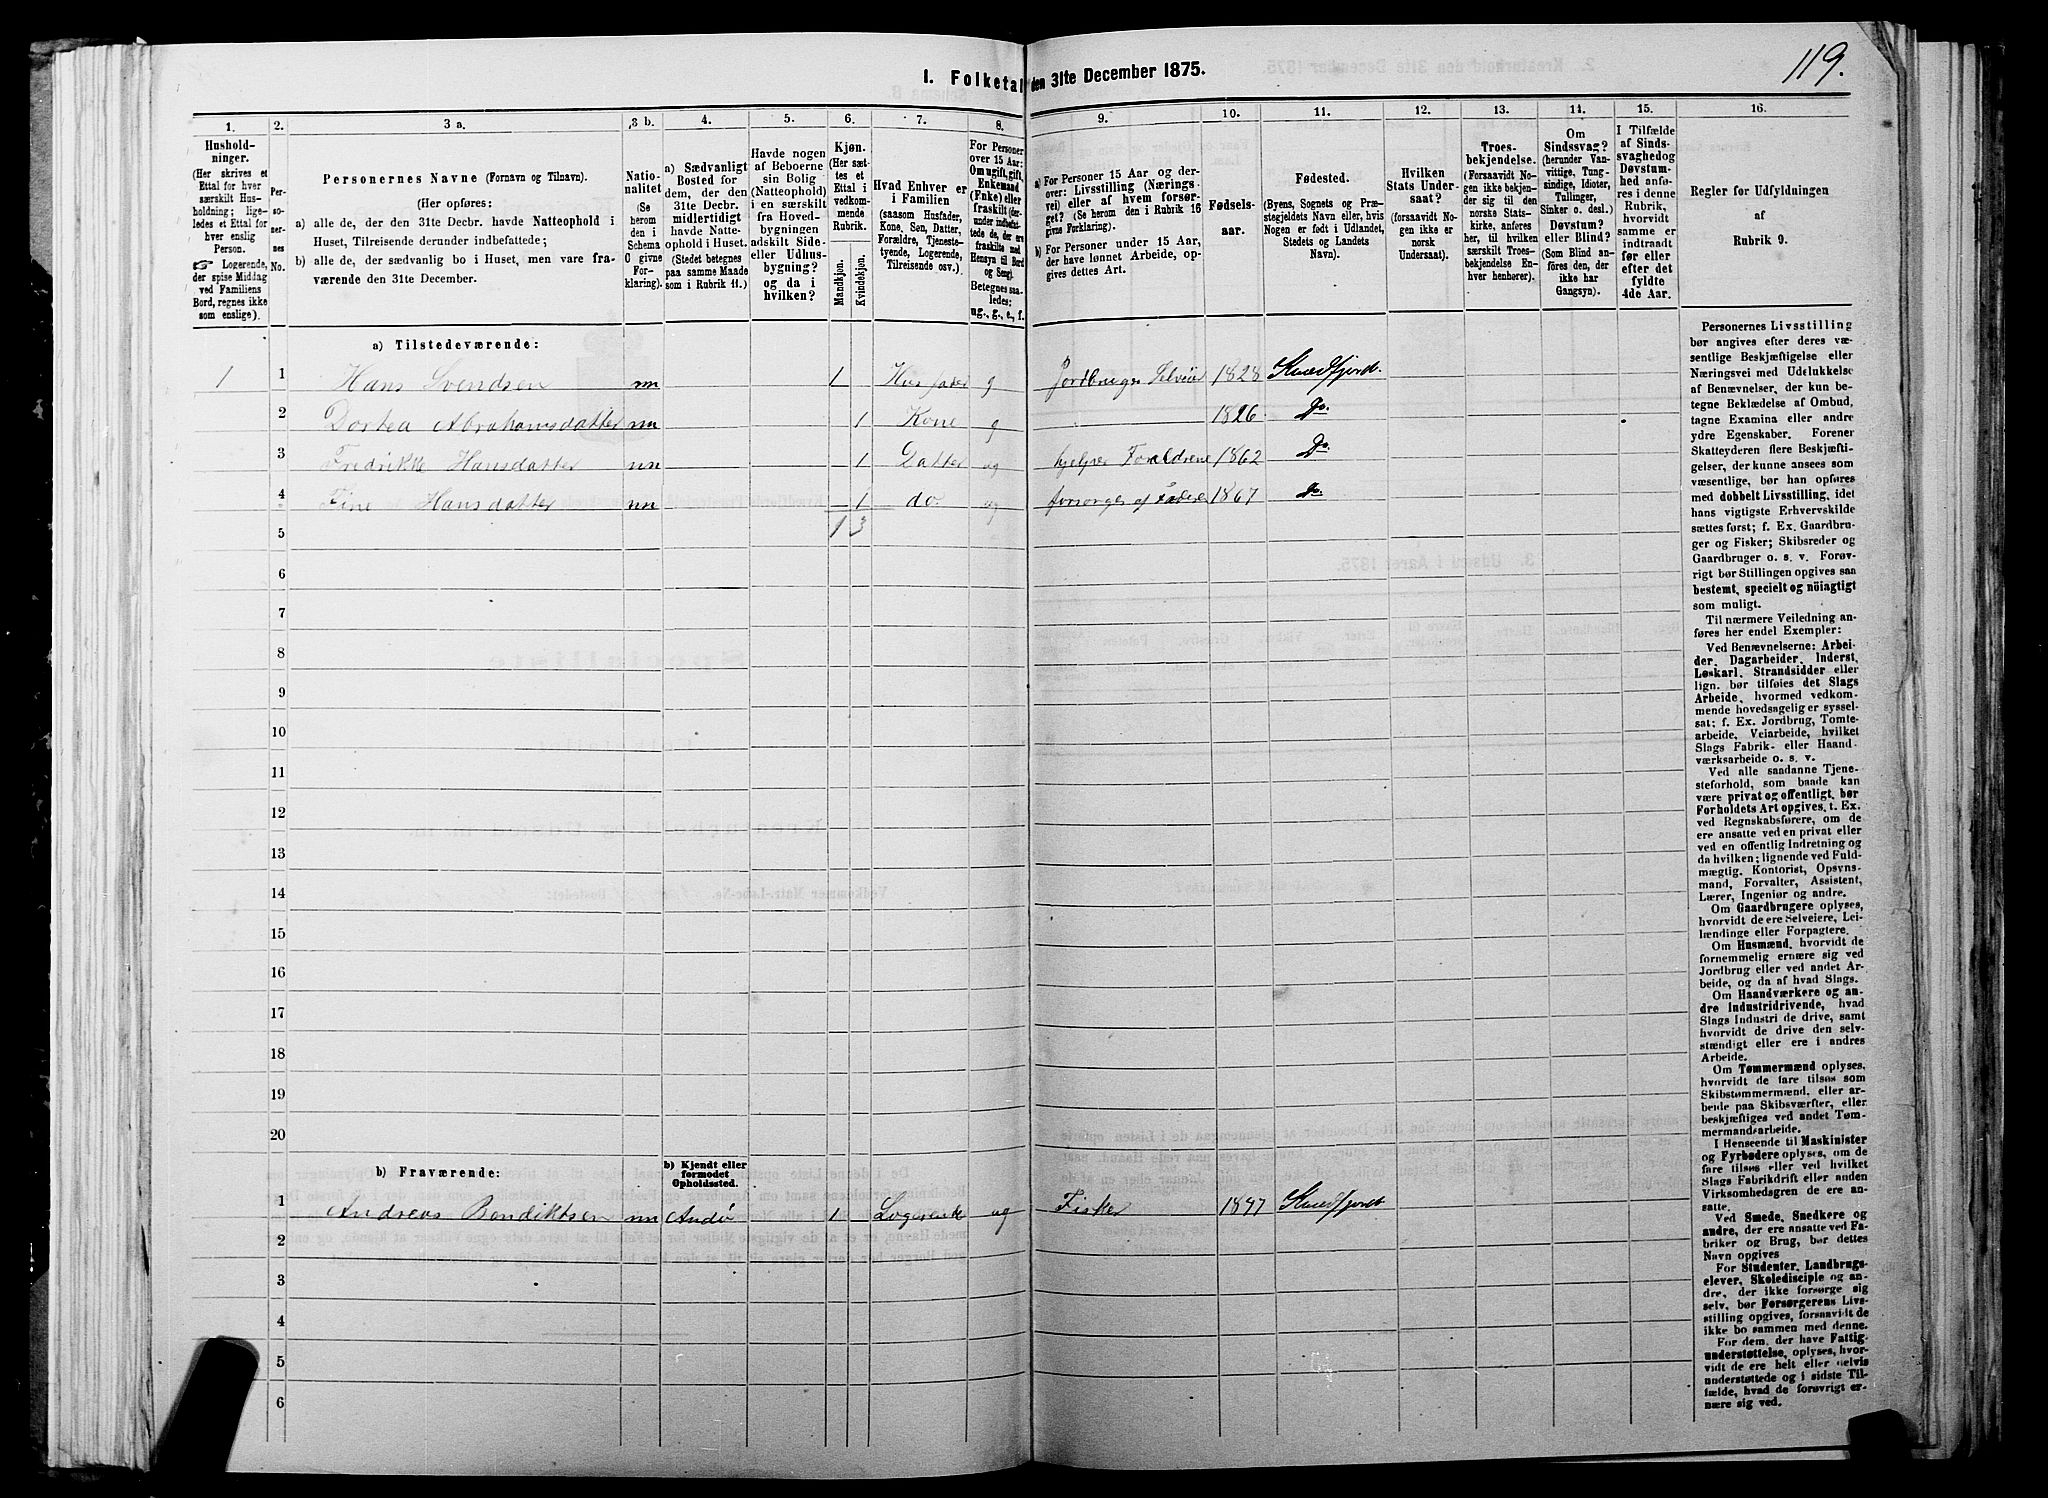 119.
I. Folketal den 31te December 1875.
1.
2.
3 a.
3 b.
4.
5.
6.
7.
8.
9.
10.
11.
12.
13.
14.
15.
16.
Hushold-
ninger.
(Her skrives et
Ettal for hver
særskilt Hus-
holdning; lige-
ledes et Ettal for
hver enslig
Person.
☞ Logerende,
der spise Middag
ved Familiens
Bord, regnes ikke
som enslige).
Per-
so-
ner-
nes
No.
Personernes Navne (Fornavn og Tilnavn).
(Her opføres:
a) alle de, der den 31te Decbr. havde Natteophold i
Huset, Tilreisende derunder indbefattede;
b) alle de, der sædvanlig bo i Huset, men vare fra-
værende den 31te December.
Natio-
nalitet
(Se
herom
den i
Schema
O givne
For-
klaring).
a) Sædvanligt
Bosted for
dem, der den
31te Decbr.
midlertidigt
havde Natte-
ophold i Huset.
(Stedet betegnes
paa samme Maade
som i Rubrik 11.)
Havde nogen
af Beboerne
sin Bolig
(Natteophold)
i en særskilt
fra Hoved-
bygningen
adskilt Side-
eller Udhus-
bygning?
og da i
hvilken?
Kjøn.
(Her sæt-
tes et
Ettal i
vedkom-
mende
Rubrik.
Mandkjøn.
Kvindekjøn.
Hvad Enhver er
i Familien
(saasom Husfader,
Kone, Søn, Datter,
Forældre, Tjeneste-
tyende, Logerende,
Tilreisende osv.)
For Personer
over 15 Aar:
Om ugift, gift,
Enkemand
(Enke) eller
fraskilt (der-
under indbefat-
tede de, der ere
fraskilte med
Hensyn til Bord
og Seng).
Betegnes saa-
ledes;
ug., g., e., f.
a) For Personer 15 Aar og der-
over: Livsstilling (Nærings-
vei) eller af hvem forsør-
get? (Se herom den i Rubrik 16
givne Forklaring).
b) For Personer under 15 Aar,
der have lønnet Arbeide, op-
gives dettes Art.
Fødsels-
aar.
Fødested.
(Byens, Sognets og Præ-
stegjeldets Navn eller, hvis
Nogen er født i Udlandet,
Stedets og Landets
Navn).
Hvilken
Stats Under-
saat?
(forsaavidt No-
gen ikke er
norsk
Undersaat).
Troes-
bekjendelse.
(Forsaavidt No-
gen ikke bekjen-
der sig til den
norske Stats-
kirke, anføres
her, til hvilken
særskilt Troes-
bekjendelse En-
hver henhører).
Om
Sindssvag?
(herunder Van-
vittige, Tung-
sindige, Idioter,
Tullinger,
Sinker o. desl.)
Døvstum?
eller Blind?
(Som Blind an-
føres den, der
ikke har
Gangsyn).
I Tilfælde
af Sinds-
svaghed og
Døvstum-
hed anfø-
res i denne
Rubrik,
hvorvidt
samme er
indtraadt
før eller
efter det
fyldte
4de Aar.
Regler for Udfyldningen
af
Rubrik 9.
a) Tilstedeværende:
1 1 Hans Svendsen nn 1 Husfader g Jordbruger Selveier 1828 Kvædfjord.
2 Dortea Abrahamsdatter nn 1 Kone g 1826 Do.
3 Fredrikke Hansdatter nn 1 Datter ug hjelper Foraldrene 1862 Do.
4 Fine Hansdatter nn 1 do ug forsørges af Fader 1867 Do.
5 1 3
6
7
8
9
10
11
12
13
14
15
16
17
18
19
20
b) Fraværende:
b) Kjendt eller
formodet
Opholdssted.
1 Andreas Bendiktsen nn Andø 1 Logerende ug Fisker 1847 Kvædfjord
2
3
4
5
6
Personernes Livsstilling
bør angives efter deres væ-
sentlige Beskjæftigelse eller
Næringsvei med Udelukkelse
af Benævnelser, der kun be-
tegne Beklædelse af Ombud,
tagne Examina eller andre
ydre Egenskaber. Forener
Skatteyderen flere Beskjæfti-
gelser, der kunne ansees som
væsentlige, bør han opføres
med dobbelt Livsstilling, idet
hans vigtigste Erhvervskilde
sættes først; f. Ex. Gaardbru-
ger og Fisker; Skibsreder og
Gaardbruger o. s. v. Forøv-
rigt bør Stillingen opgives saa
bestemt, specielt og nöiagtigt
som muligt.
Til nærmere Veiledning an-
føres her endel Exempler:
Ved Benævnelserne: Arbei-
der, Dagarbeider, Inderst,
Løskarl, Strandsidder eller
lign. bør tilføies det Slags
Arbeide, hvormed vedkom-
mende hovedsagelig er syssel-
sat; f. Ex. Jordbrug, Tomte-
arbeide, Veiarbeide, hvilket
Slags Fabrik- eller Haand-
værksarbeide o. s. v.
Ved alle saadanne Tjene-
steforhold, som baade kan
være privat og offentligt, bør
Forholdets Art opgives, t. Ex.
ved Regnskabsførere, om de
ere ansatte ved en privat eller
ved en offentlig Indretning og
da hvilken; lignende ved Fuld-
mægtig, Kontorist, Opsyns-
mand, Forvalter, Assistent,
Lærer, Ingeniør og andre.
Om Gaardbrugere oplyses,
hvorvidt de ere Selveiere, Lei-
lændinge eller Forpagtere.
Om Husmænd, hvorvidt de
fornemmelig ernære sig ved
Jordbrug eller ved andet Ar-
beide, og da af hvad Slags.
Om Haandværkere og an-
dre Industridrivende, hvad
Slags Industri de drive, samt
hvorvidt de drive den selv-
stændigt eller ere i andres
Arbeide.
Om Tømmermænd oplyses,
hvorvidt de fare tilsøs som
Skibstømmermænd, eller ar-
beide paa Skibsværfter, eller
beskjæftiges ved andet Tøm-
mermandsarbeide.
I Henseende til Maskinister
og Fyrbødere oplyses, om de
fare tilsøs eller ved hvilket
Slags Fabrikdrift eller anden
Virksomhedsgren de ere an-
satte.
Ved Smede, Snedkere og
andre, der ere ansatte ved Fa-
briker og Brug, bør dettes
Navn opgives
For Studenter, Landbrugs-
elever, Skoledisciple og an-
dre, der ikke forsørge sig
selv, bør Forsørgerens Livs-
stilling opgives, forsaavidt de
ikke bo sammen med denne.
For dem, der have Fattig-
understøttelse, oplyses, hvor-
vidt de ere helt eller delvis
understøttede og i sidste Til-
fælde, hvad de forøvrigt er-
nære sig ved.